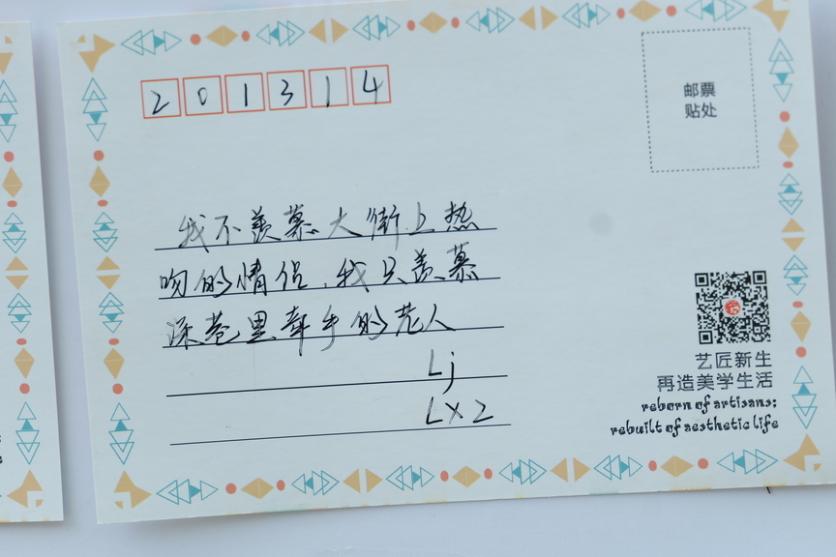 201314
邮票
贴处
我不羡慕大街上热
吻的情侣,我只羡慕
深巷里牵手的老人
Lj
LXZ
艺匠新生
再造美学生活
reborn of artisans:
rebuilt of aesthetic life